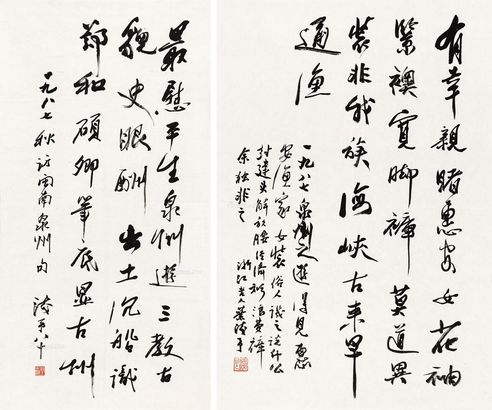 有幸親睹惠安女花袖
緊襖寬脚褲莫道異
裝非我族海峽古來早
通渔
一九八七泉州之遊得見惠
安渔家女裝俗人譏之謂什么
封建头解放腰经濟衫浪费褲
余独非之 浙江老人葉浅予
最慰平生泉州遊三教古
貌史眼酬出土沉船識
鄭和碩卿筆底显古州
一九八七秋访闽南泉州句 浅予八十